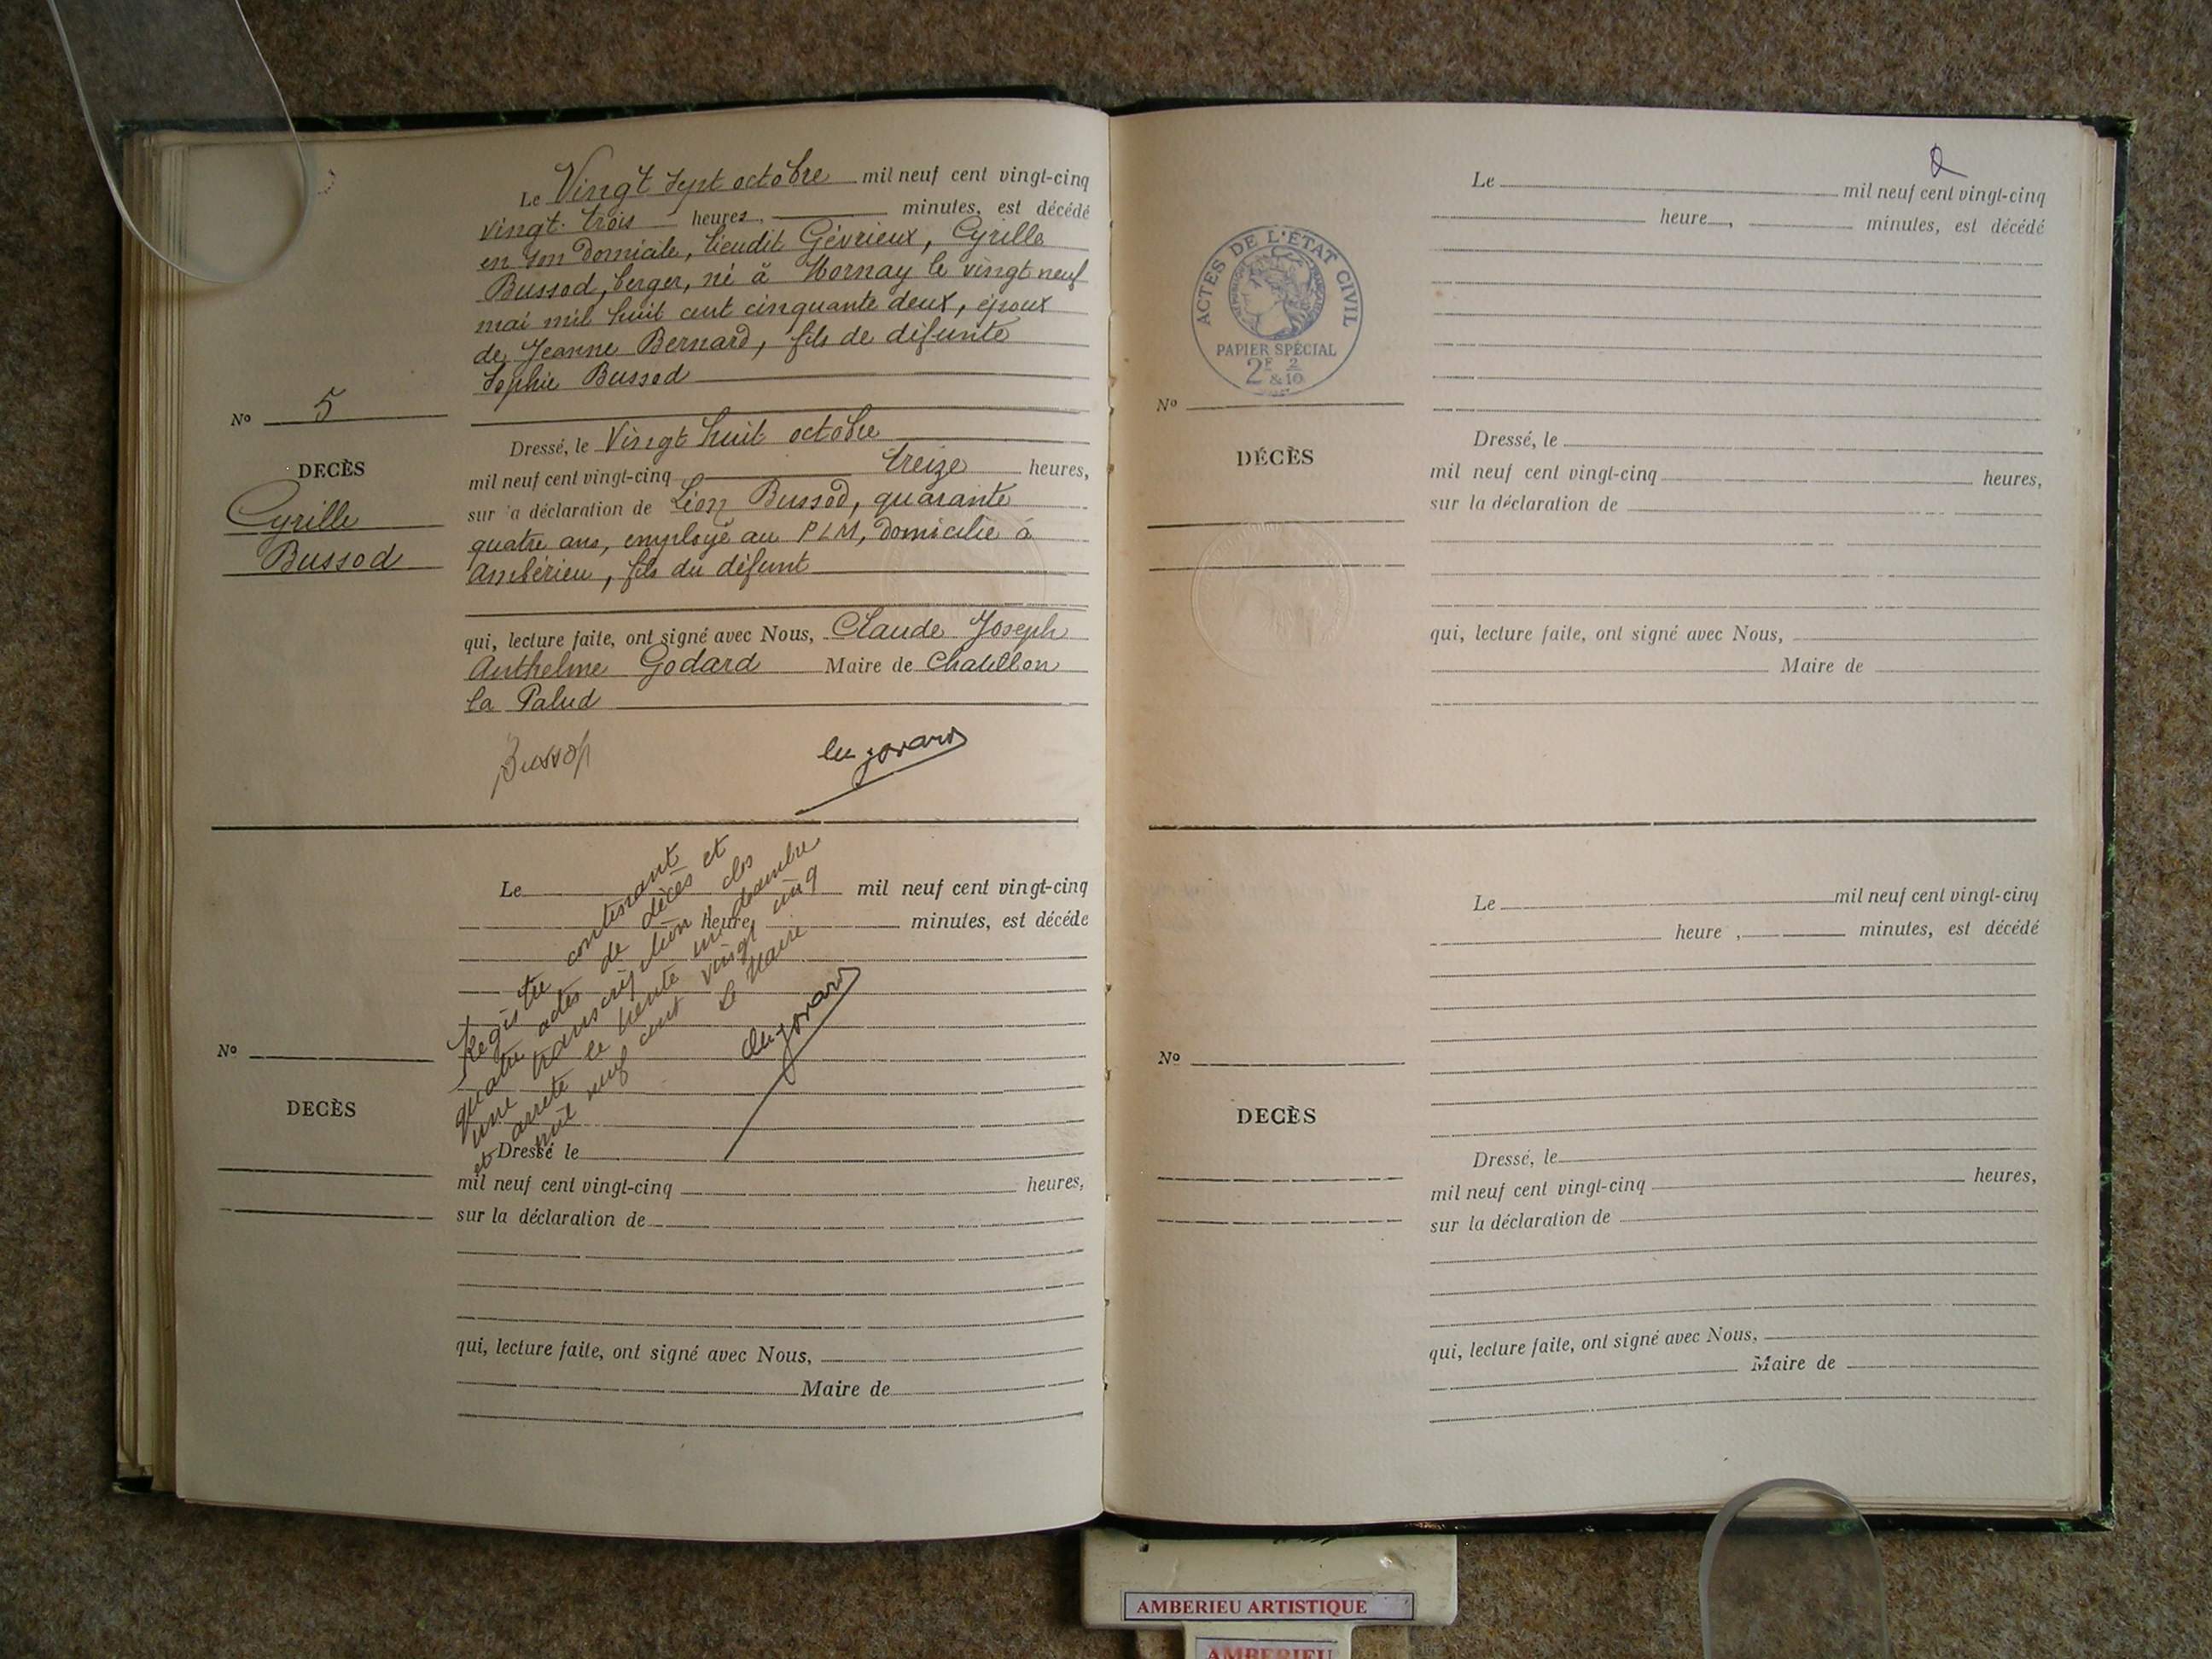 Le Vingt sept octobre mil neuf cent vingt-cinq
vingt trois heures, minutes, est décédé
en son domicile, lieudit Gévrieux, Cyrille
Bussod, berger, né à Hornay le vingt neuf
mai mil huit cent cinquante deux, époux
de Jeanne Bernard, fils de défunte
Sophie Bussod
No 5
DECÈS
Cyrille
Bussod
Dressé, le Vingt huit octobre
mil neuf cent vingt-cinq treize heures,
sur a déclaration de Léon Bussod, quarante
quatre ans, employé au PLM, domicilié à
Ambérieu, fils du défunt
qui, lecture faite, ont signé avec Nous, Claude Joseph
Anthelme Godard Maire de Chatillon
la Palud
Bussod
Le mil neuf cent vingt-cinq
heure minutes, est décédé
Registre contenant
quatre actes de décès et
une transcription clos
et arrêté le trente un décembre
mil neuf cent vingt cinq
Le Maire
No
DECÈS
Dressé le
mil neuf cent vingt-cinq heures,
sur la déclaration de
qui, lecture faite, ont signé avec Nous,
Maire de
2
Le mil neuf cent vingt-cinq
heure, minutes, est décédé
ACTES DE L'ÉTAT CIVIL
RÉPUBLIQUE FRANÇAISE
PAPIER SPÉCIAL
2F 2
& 10
No
DÉCÈS
Dressé, le
mil neuf cent vingt-cinq heures,
sur la déclaration de
qui, lecture faite, ont signé avec Nous,
Maire de
Le mil neuf cent vingt-cinq
heure , minutes, est décédé
No
DECÈS
Dressé, le
mil neuf cent vingt-cinq heures,
sur la déclaration de
qui, lecture faite, ont signé avec Nous,
Maire de
AMBERIEU ARTISTIQUE
AMBERIEU